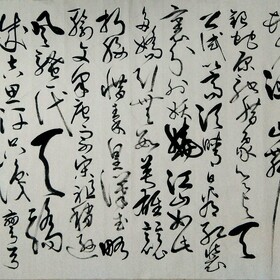 山舞
银蛇原驰蜡象欲与天
公试比高须晴日看红装
素裹分外妖娆江山如此
多娇引无数英雄竞
折腰惜秦皇汉武略
输文采唐宗宋祖稍逊
风骚一代天骄
成吉思汗只识弯弓